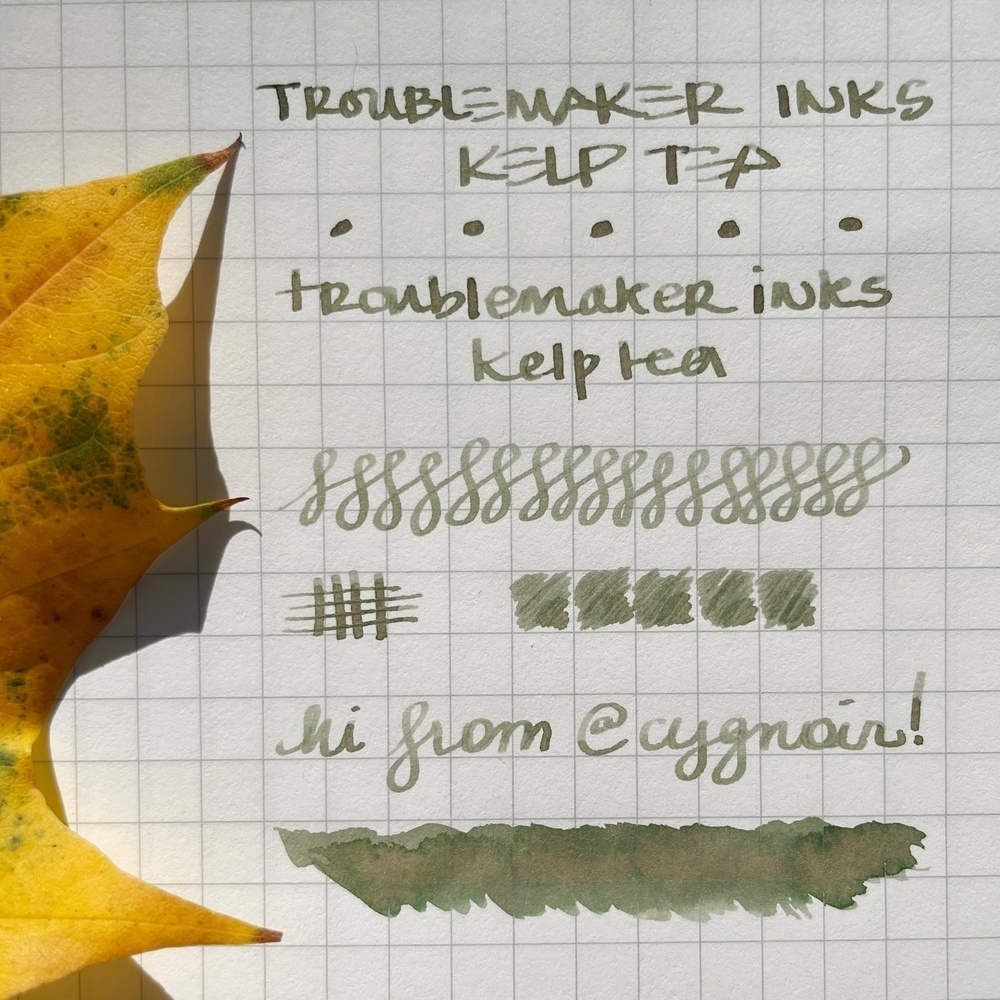 TROUBLEMAKER INKS
KELP TEA
troublemaker inks
kelp tea
hi from @cygnoir!